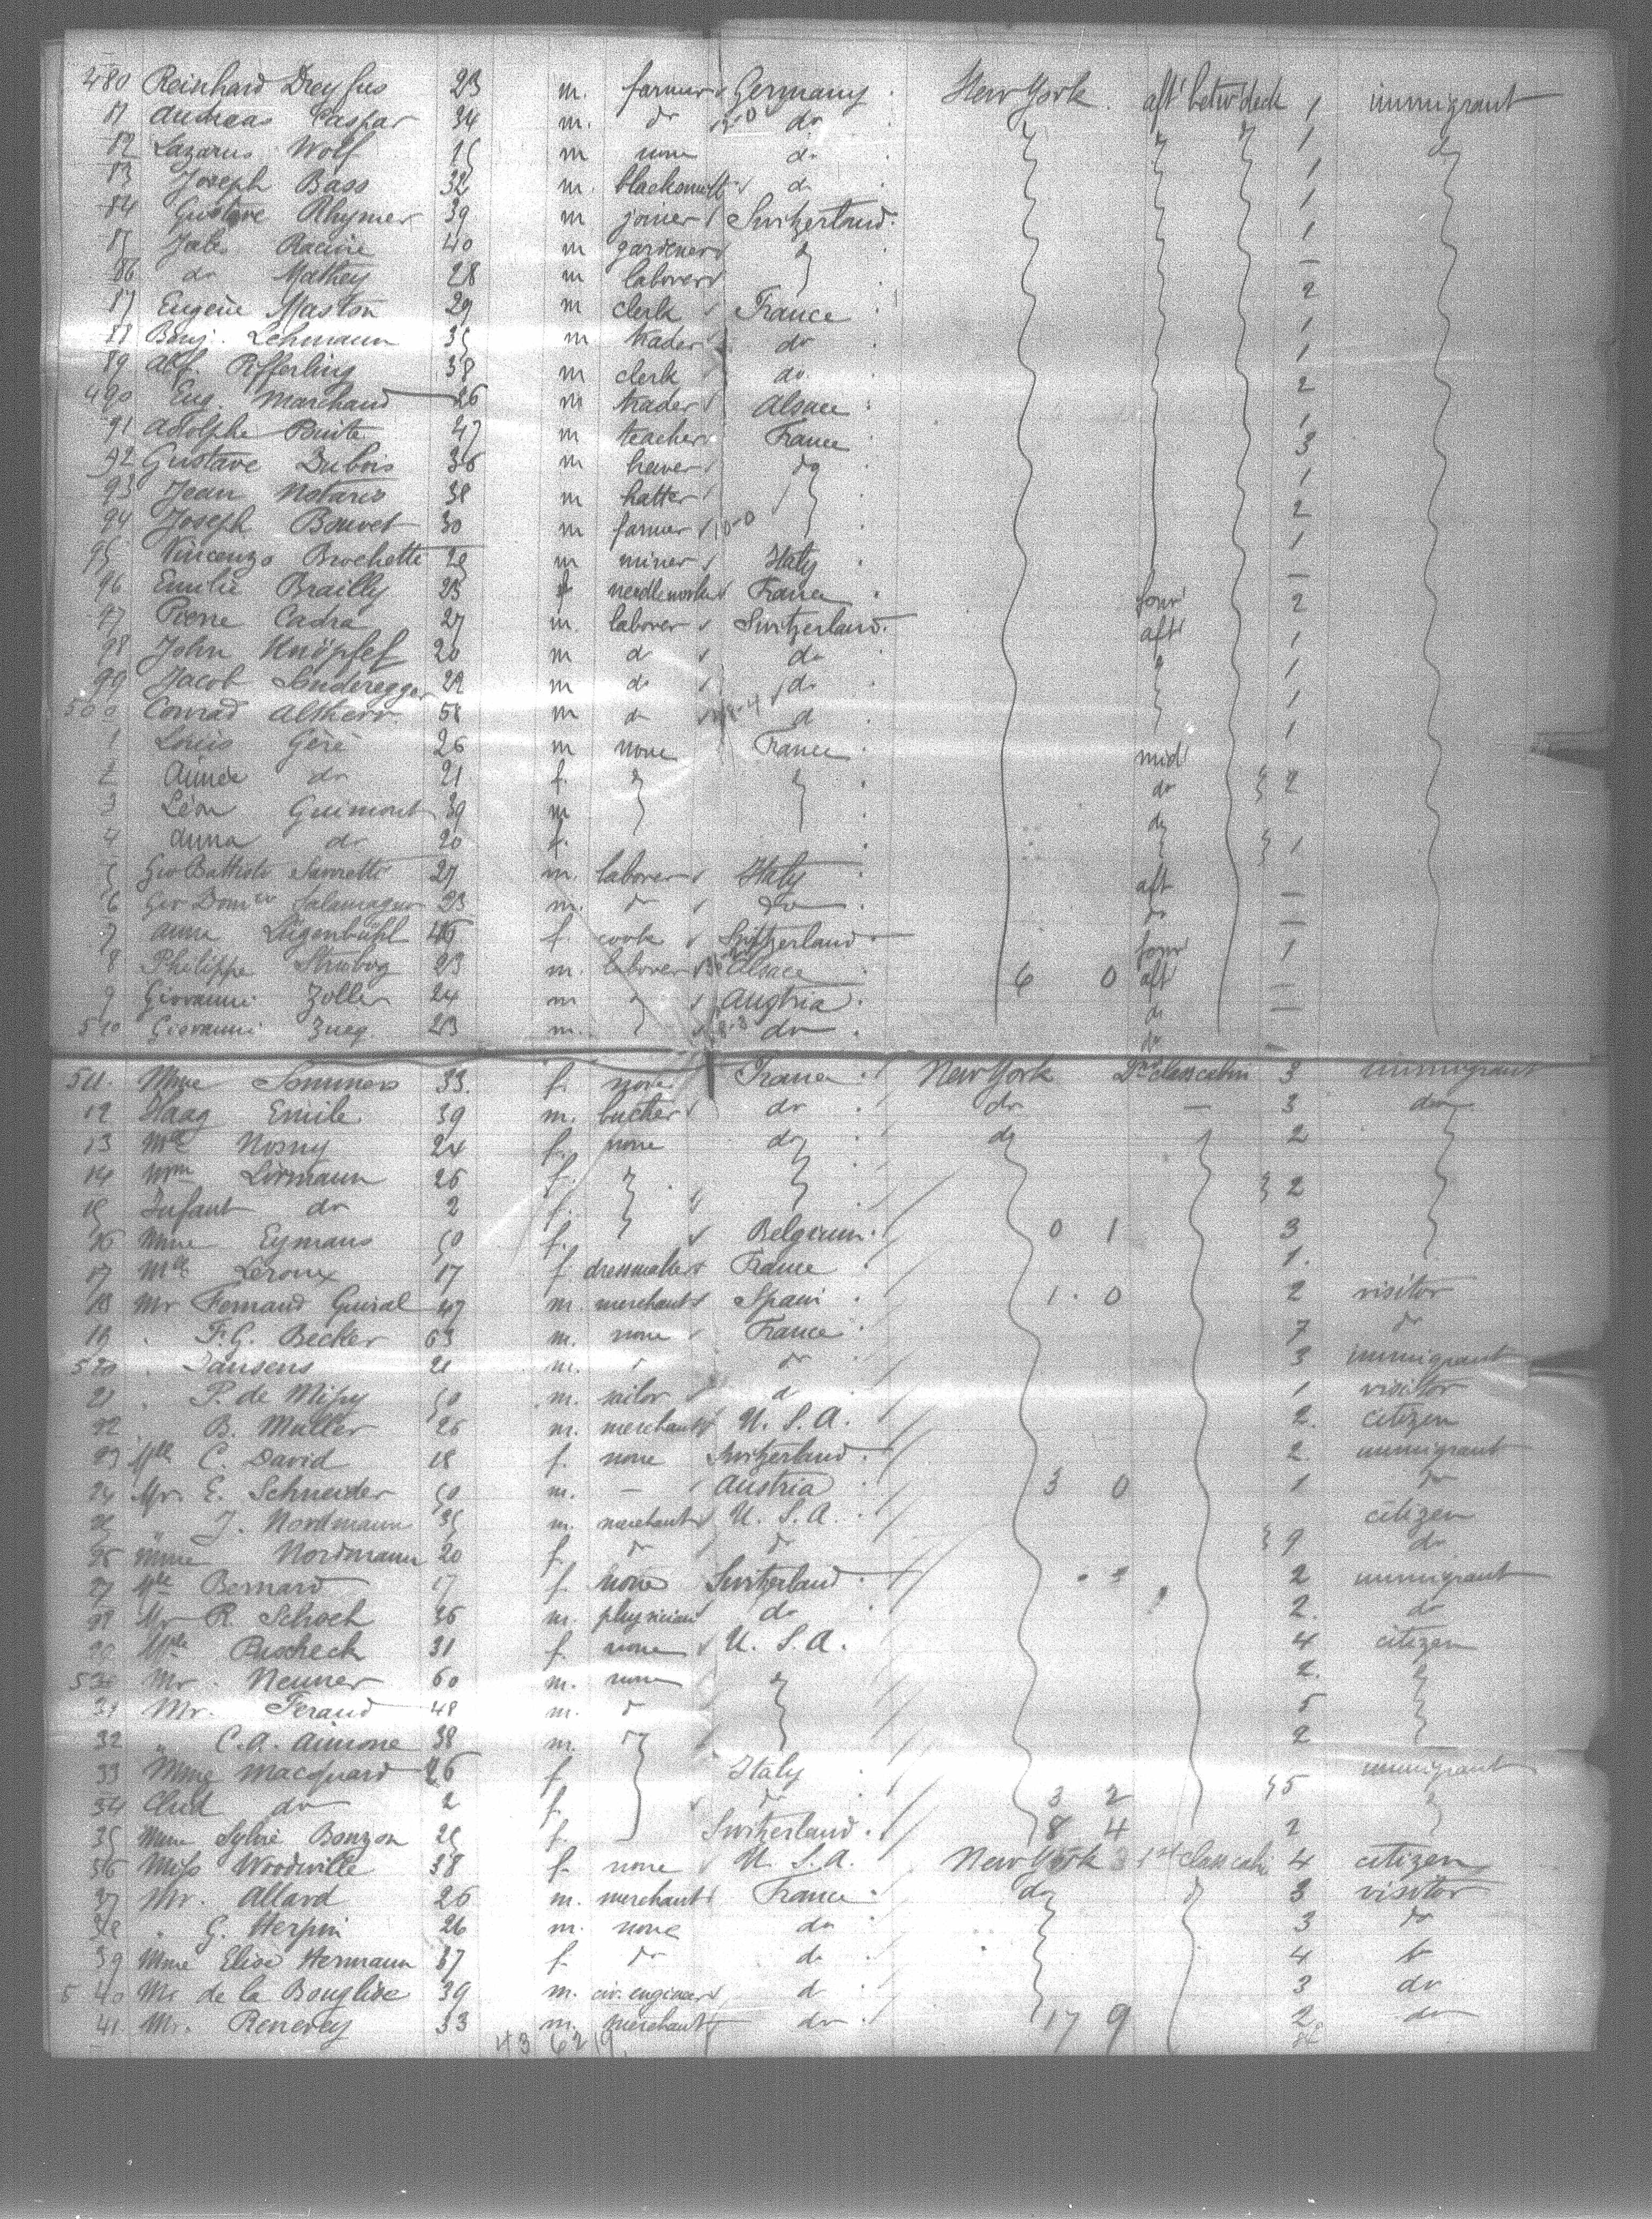 480 Reinhard Dreyfus 23 m. farmer Germany New York aft' betw' deck 1 immigrant
81 Andreas Caspar 34 m. do do 1 do
82 Lazarus Wolf 15 m none do 1
83 Joseph Bass 32 m. blacksmith do 1
84 Gustave Rhymer 39 m joiner Switzerland 1
85 Jules Racine 40 m gardener —
86 do Mathey 28 m laborer 2
87 Eugène Maston 29 m clerk France 1
88 Benj. Lehmann 35 m trader do 1
89 Alf. Pifferling 38 m clerk do 2
490 Eug. Marchand 26 m trader Alsace 1
91 Adolphe Buite 47 m teacher France 3
92 Gustave Dubois 36 m do 1
93 Jean Notaris 38 m hatter 2
94 Joseph Bouvet 30 m farmer 1
95 Vincenzo Brochette 29 m miner Italy —
96 Emilie Brailly 23 f needleworker France forw' 2
97 Pierre Cadra 27 m. laborer Switzerland aft'
98 John Knöpfel 20 m do do 1
99 Jacob Sonderegger 22 m do do 1
500 Conrad Altherr 58 m do do 1
1 Louis Géré 26 m none France mid' 1
2 Aimée do 21 f. do 2
3 Léon Guimont 39 m do
4 Anna do 20 f. 1
5 Gio Battista 27 m. laborer Italy aft —
6 Gio Domco Salamagno 23 m. do do do —
7 Anna Lügenbühl f. cook Switzerland forw' 1
8 Philippe 23 m. laborer Alsace 6 0 aft —
9 Giovanni Zoller 24 m Austria do —
510 Giovanni Zueq. 23 m. do do —
511. Mme Sommers 33. f. none France New York 2d class cabin 3 immigrant
12 Haag Emile 39 m. bucher do do — 3 do
13 Mlle Nosny 24 f. none do do 2
14 Mme Lirmann 26 f. 2
15 Infant do 2 f.
16 Mme Eymans 50 f. Belgium 0 1 3
17 Mlle Leroux 17 f dressmaker France 1.
18 Mr Fernand Guiral 47 m. merchant Spain 1. 0 2 visitor
19 " F. G. Becker 63 m. none France 7 do
520 " Jansens 21 m. do 3 immigrant
21 " P. de Missy 50 m. sailor do 1 visitor
22 " B. Muller 26 m. merchant U. S. A. 2. citizen
23 Mlle C. David 18 f. none Switzerland 2 immigrant
24 Mr. E. Schneider 50 m. — Austria 3 0 1 do
25 " J. Nordmann 35 m. merchant U. S. A. citizen
26 Mme Nordmann 20 f. do do 9 do
27 Mlle Bernard 17 f none Switzerland 2 immigrant
28 Mr R. Schoch 36 m. physician do 2. do
29 Mlle Puscheck 31 f none U. S. A. 4 citizen
530 Mr. Neuner 60 m. none 2.
31 Mr. Feraud 48 m. do 5
32 " C. A. Aimone 38 m. 2
33 Mme Macquard 26 f Italy 5 immigrant
34 Child do 2 f. do 3 2
35 Mme Sylvie Bonzon 25 f. Switzerland 8 4 2
536 Miss Woodville 38 f. none U. S. A. New York 1st class cabin 4 citizen
37 Mr. Allard 26 m. merchant France do do 3 visitor
38 " G. Herpin 26 m. none do 3 do
39 Mme Elise Hermann 37 f. do do 4 do
540 Mr de la Bouglise 39 m. civ. engineer do 3 do
41 Mr. Renevey 33 m. merchant do 17 9 2 do
43 62 9